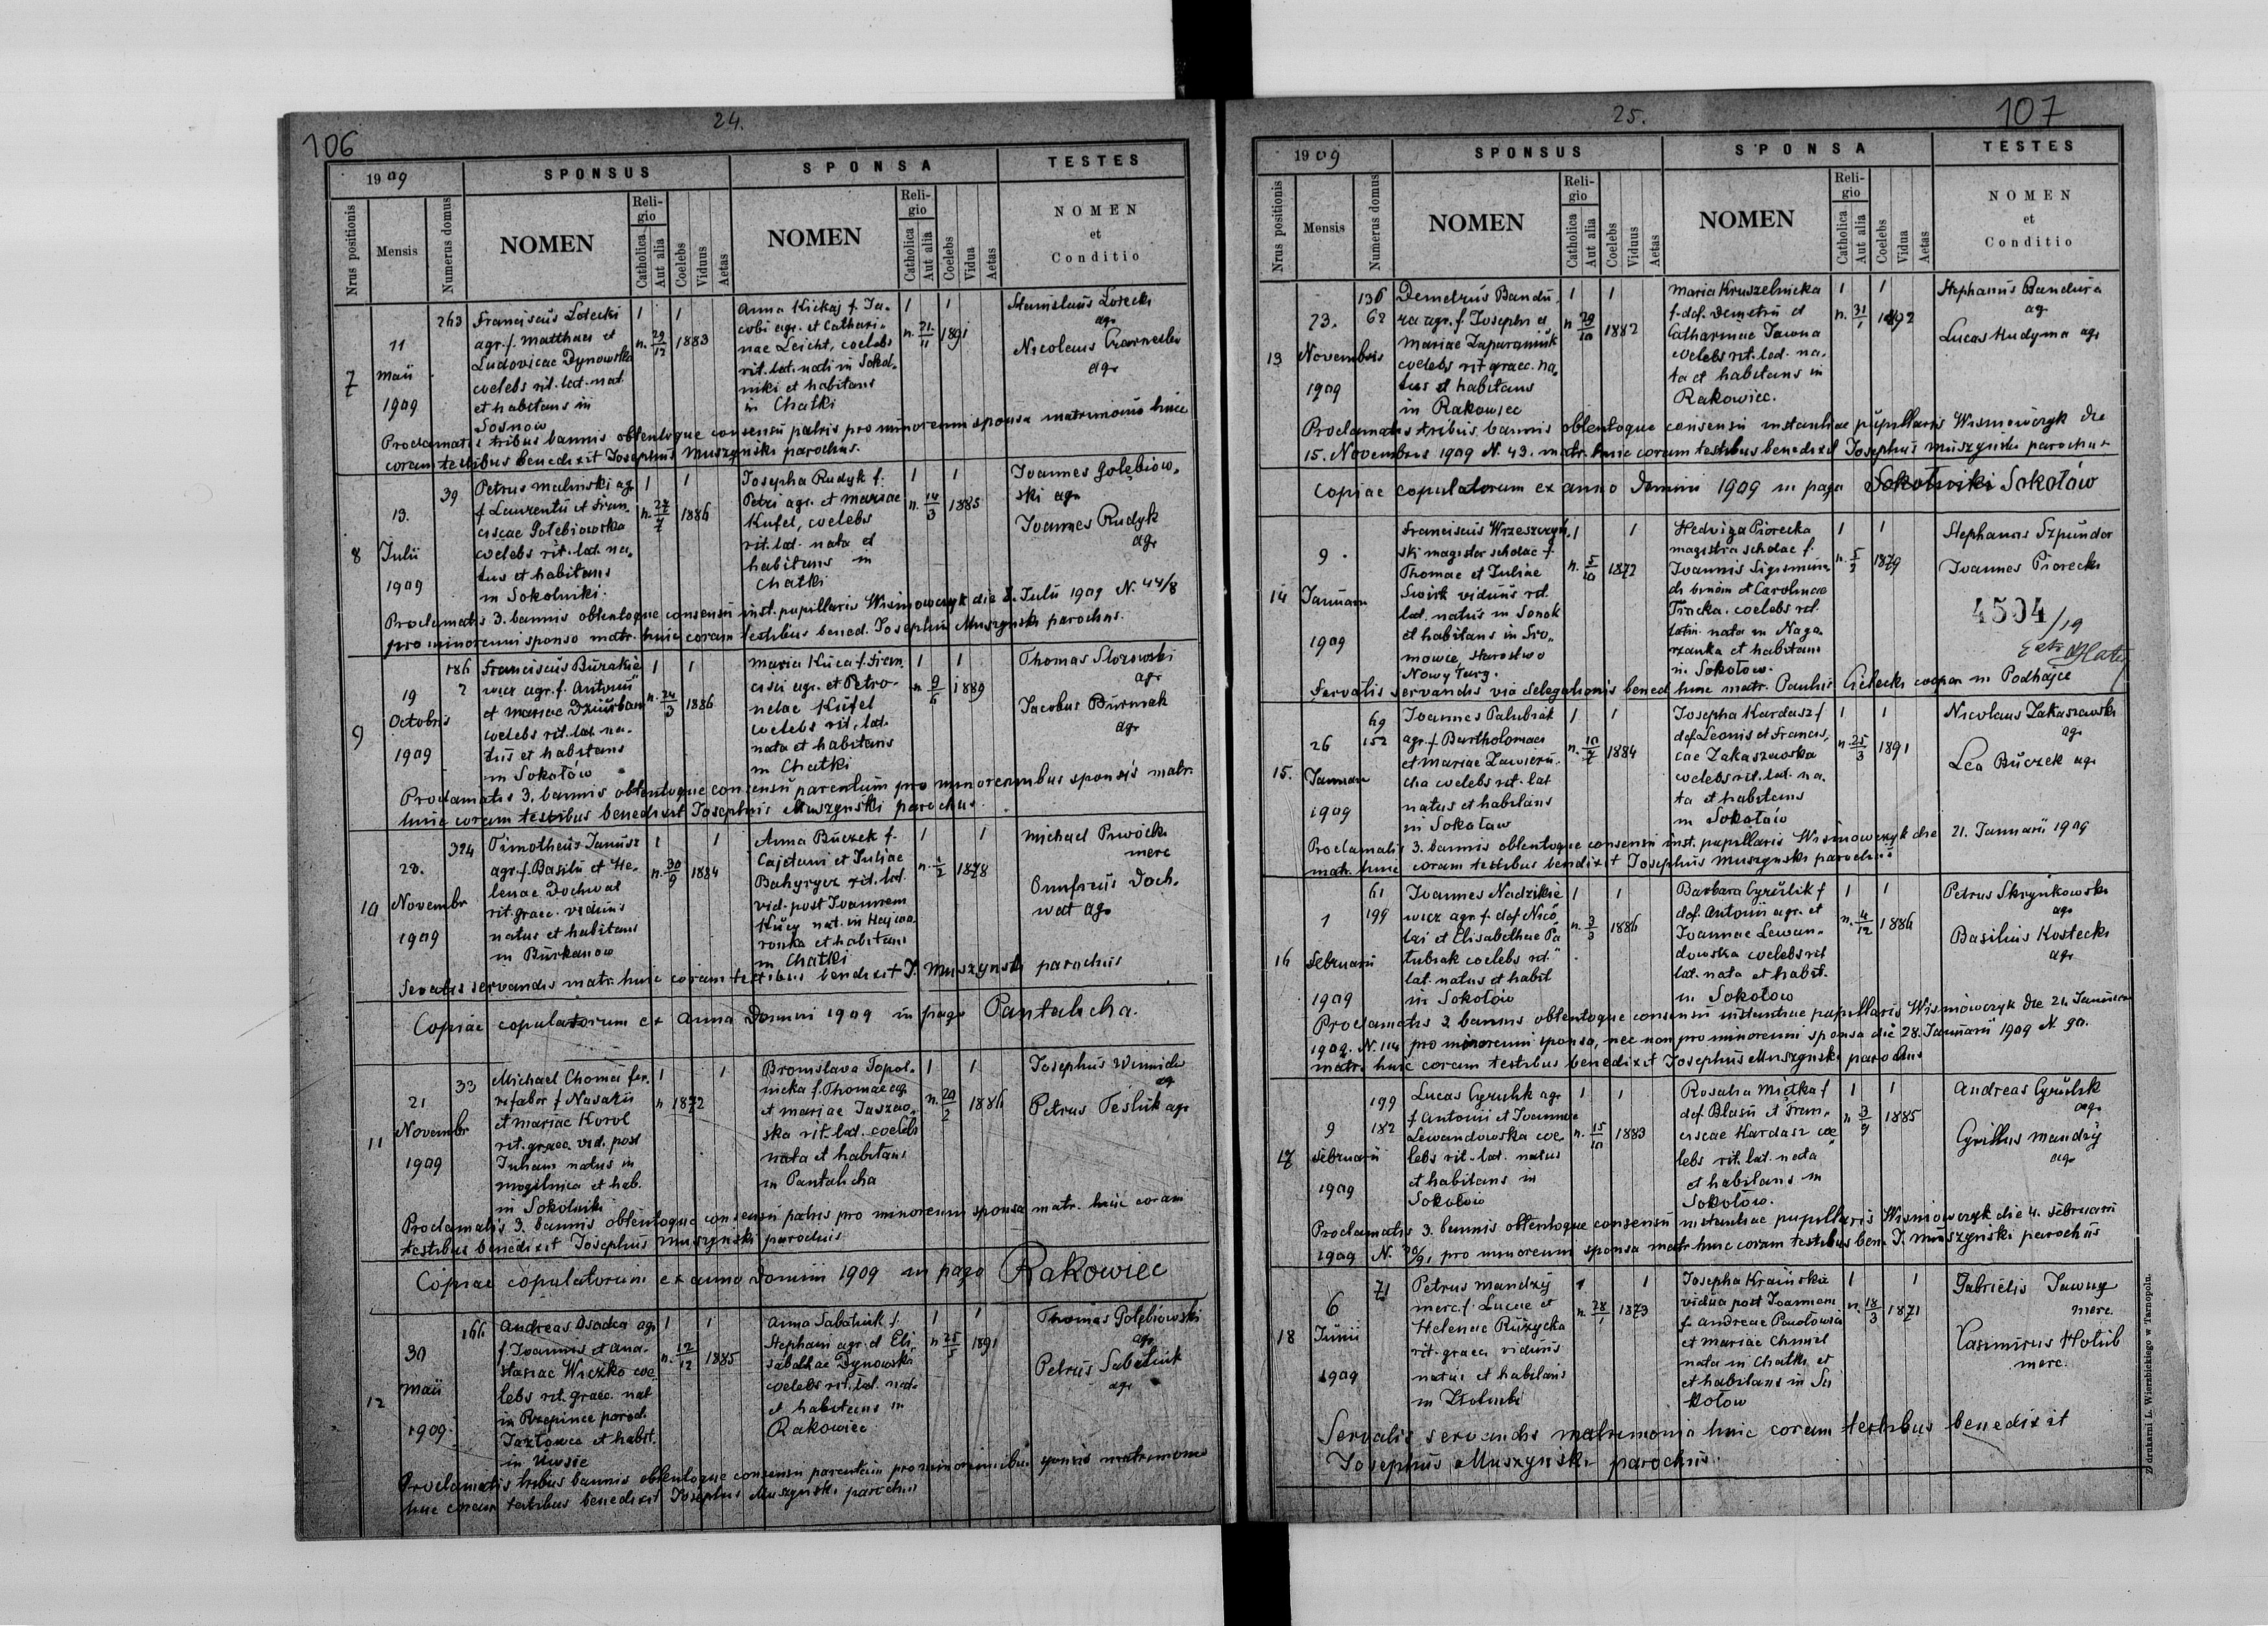 106
24.
1909
SPONSUS
SPONSA
TESTES
Nrus positionis
Mensis
Numerus domus
NOMEN
Religio
Catholica
Aut alia
Coelebs
Viduus
Aetas
NOMEN
Religio
Catholica
Aut alia
Coelebs
Vidua
Aetas
NOMEN
et
Conditio
7
11
Maii
1909
263
Franciscus Lotecki
agr. f. Matthaei et
Ludovicae Dynowska
coelebs rit. lat. nat.
et habitans in
Sosnow
1
1
n. 29/12 1883
Anna Kickaj f. Ja-
cobi agr. et Cathari-
nae Leicht, coelebs
rit. lat. nati in Sokol-
niki et habitans
in Chatki
1
1
n. 21/11 1891
Stanislaus Lorecki
agr
Nicolaus Czarnecki
agr
Proclamatis tribus bannis obtentoque consensu patris pro minorenni sponsa matrimonio huic
coram testibus benedixit Josephus Muszynski parochus.
8
13.
Julii
1909
39
Petrus Malinski ag
f. Laurentii et Fran-
ciscae Golebiowska
coelebs rit. lat. na-
tus et habitans
in Sokolniki.
1
1
n. 27/7 1886
Josepha Rudyk f.
Petri agr. et Mariae
Kufel, coelebs
rit. lat. nata et
habitans in
Chatki
1
1
n. 14/3 1885
Joannes Golębiow-
ski agr
Joannes Rudyk
agr
Proclamatis 3. bannis obtentoque consensu inst. pupillaris Wisniowczyk die 8. Julii 1909 N. 44/8
pro minorenni sponso matr. huic coram testibus bened. Josephus Muszynski parochus.
9
19
Octobris
1909
186
2
Franciscus Burakie-
wicz agr. f. Antonii
et Mariae Dziurban
coelebs rit. lat. na-
tus et habitans
in Sokołów
1
1
n. 24/3 1886
Maria Kuca f. Fran
cisci agr. et Petro-
nelae Kufel
coelebs rit. lat.
nata et habitans
in Chatki
1
1
n. 9/6 1889
Thomas Slozowski
agr
Jacobus Burmak
agr
Proclamatis 3. bannis obtentoque consensu parentum pro minorennibus sponsis matr.
huic coram testibus benedixit Josephus Muszynski parochus.
10
28.
Novembr
1909
324
Timotheus Janusz
agr. f. Basilii et He-
lenae Dochwat
rit. graec. viduus
natus et habitans
in Burkanow
1
1
n. 30/9 1884
Anna Buczek f.
Cajetani et Juliae
Bahyrycz rit. lat.
vid. post Joannem
Kucy nat. in Hajwo
ronka et habitans
in Chatki
1
1
n. 1/2 1878
Michael Piwocki
merc
Onufrius Doch-
wat agr
Servatis servandis matr. huic coram testibus benedixit J. Muszynski parochus
Copiae copulatorum ex anno Domini 1909 in pago Pantalicha.
11
21
Novembr
1909
33
Michael Chomei fer-
refaber f Nasarii
et Mariae Korol
rit. graec. vid. post
natus in
Mogilnica et hab.
in Sokolniki
1
1
n 1872
Bronislava Topol-
nicka f. Thomae agr
et Mariae Jaszcz-
ska rit. lat. coelebs
nata et habitans
in Pantalicha
1
1
n. 20/2 1886
Josephus Winnicki
ag
Petrus Teslik agr
Proclamatis 3. bannis obtentoque consensu patris pro minorenni sponsa matr. huic coram
testibus benedixit Josephus Muszynski parochus
Copiae copulatorum ex anno Domini 1909 in pago Rakowiec
12
30
Maii
1909
166
Andreas Osadca agr
f. Joannis et Ana-
stasiae Wiczko coe
lebs rit. graec. nat
in Rzepince paroch.
Jazłowce et habit.
in Uwsie
1
1
n. 12/12 1885
Anna Sabatiuk f.
Stephani agr. et Eli-
sabethae Dynowski
coelebs rit. lat. nat.
et habitans in
Rakowiec
1
1
n 25/5 1891
Thomas Golębiowski
agr
Petrus Sabatiuk
agr
Proclamatis tribus bannis obtentoque consensu parentum pro minorennibus sponsis matrimonio
huic coram testibus benedixit Josephus Muszynski parochus
107
25.
1909
SPONSUS
SPONSA
TESTES
Nrus positionis
Mensis
Numerus domus
NOMEN
Religio
Catholica
Aut alia
Coelebs
Viduus
Aetas
NOMEN
Religio
Catholica
Aut alia
Coelebs
Vidua
Aetas
NOMEN
et
Conditio
13
23.
Novembris
1909
136
68
Demetrius Bandu-
ra agr. f. Josephi et
Mariae Zaparaniuk
coelebs rit graec. na-
tus et habitans
in Rakowiec
1
1
n 29/10 1882
Maria Kruszelnicka
f. def. Demetrii et
Catharinae Jawna
coelebs rit. lat. na-
ta et habitans in
Rakowiec.
1
1
n. 31/1 1892
Stephanus Bandura
ag
Lucas Hudyma agr
Proclamatis tribus bannis obtentoque consensu instantiae pupillaris Wisniowczyk die
15. Novembris 1909 N. 43. matr. huic coram testibus benedixit Josephus Muszynski parochus
Copiae copulatorum ex anno Domini 1909 in pago Sokolniki Sokołów
14
9.
Januarii
1909
Franciscus Wrzeszczyń-
ski magister scholae f.
Thomae et Juliae
Swirk viduus rit.
lat. natus in Sanok
et habitans in Fro-
mowce, starostwo
Nowy Targ.
1
1
n. 5/10 1872
Hedviga Piorecka
magistra scholae f.
Joannis Sigismun-
di binom et Carolinae
Tracka. coelebs rit.
latin. nata in Naga-
rzanka et habitans
in Sokołow.
1
1
n. 5/2 1879
Stephanus Szpunder
Joannes Piorecki
4504/19
Servatis servandis via delegationis bened. huic matr. Paulus Cielecki cooper in Podhajce
15.
26
Januarii
1909
69
152
Joannes Palubiak
agr. f Bartholomaei
et Mariae Zawieru-
cha coelebs rit. lat
natus et habitans
in Sokołow
1
1
n. 10/7 1884
Josepha Kardasz f
def Leonis et Francis-
cae Zakaszewska
coelebs rit. lat. na-
ta et habitans
in Sokołów
1
1
n. 25/3 1891
Nicolaus Zakaszewski
agr
Leo Buczek agr
Proclamatis 3. bannis obtentoque consensu inst. pupillaris Wisniowczyk die 21. Januarii 1909
matr. huic coram testibus bendixit Josephus Muszynski parochus
16
1
Februarii
1909
61
199
Joannes Nadzikie
wicz agr. f. def Nico
lai et Elisabethae Pa
lubiak coelebs rit.
lat. natus et habit
in Sokołów
1
1
n. 3/3 1886
Barbara Cyrulik f
def. Antonii agr. et
Joannae Lewan-
dowska coelebs rit
lat. nata et habit.
in Sokołow
1
1
n. 4/12 1886
Petrus Skrynkowski
agr
Basilius Kostecki
agr
Proclamatis 3. bannis obtentoque consensu instantiae pupillaris Wisniowczyk die 21. Januarii
1909. N. 114 pro minorenni sponso, nec non pro minorenni sponsa die 28. Januarii 1909 N. 90.
matr. huic coram testibus benedixit Josephus Muszynski parochus
17
9
Februarii
1909
199
182
Lucas Cyrulik agr
f Antoni et Joannae
Lewandowska coe-
lebs rit. lat. natus
et habitans in
Sokołow
1
1
n. 15/10 1883
Rosalia Miętka f
def. Blasii et Fran-
ciscae Kardasz coe
lebs rit. lat. nata
et habitans in
Sokołow.
1
1
n 3/9 1885
Andreas Cyrulik
agr
Cyrillus Mandzij
agr
Proclamatis 3. bannis obtentoque consensu instantiae pupillaris Wisniowczyk die 4. Februarii
1909 N. pro minorenni sponsa matr huic coram testibus ben. J. Muszynski parochus
18
6
Junii
1909
71
Petrus Mandzij
merc. f. Lucae et
Helenae Ruzycka
rit. graec. viduus
natus et habitans
in
1
1
n. 28/1 1873
Josepha Krainska
vidua post Joannem
f. Andreae Pawlowicz
et Mariae Chmil
nata in Chatki et
et habitans in So
kołow
1
1
n. 18/3 1871
Gabrielis Jawny
merc.
Casimirus Hołub
merc.
Servatis servandis matrimonio huic coram testibus benedixit
Josephus Muszynski parochus.
Z drukarni L. Wierzbickiego w Tarnopolu.